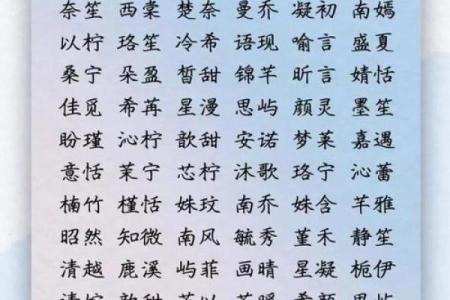 奈笙 西棠 楚奈 曼乔 凝初 南嫣
以柠 珞笙 冷希 语现 喻言 盛夏
桑宁 朵盈 皙甜 锦芊 昕言 婧恬
佳觅 希苒 星漫 思屿 颜灵 墨笙
盼瑾 沁柠 歆甜 安诺 梦莱 嘉遇
意恬 茉宁 芯柠 沐歌 珞宁 沁蕾
楠竹 槿恬 姝玟 南乔 姝含 芊雅
昭然 知微 南风 毓秀 董禾 静笙
清越 鹿溪 屿菲 画晴 星凝 栀伊